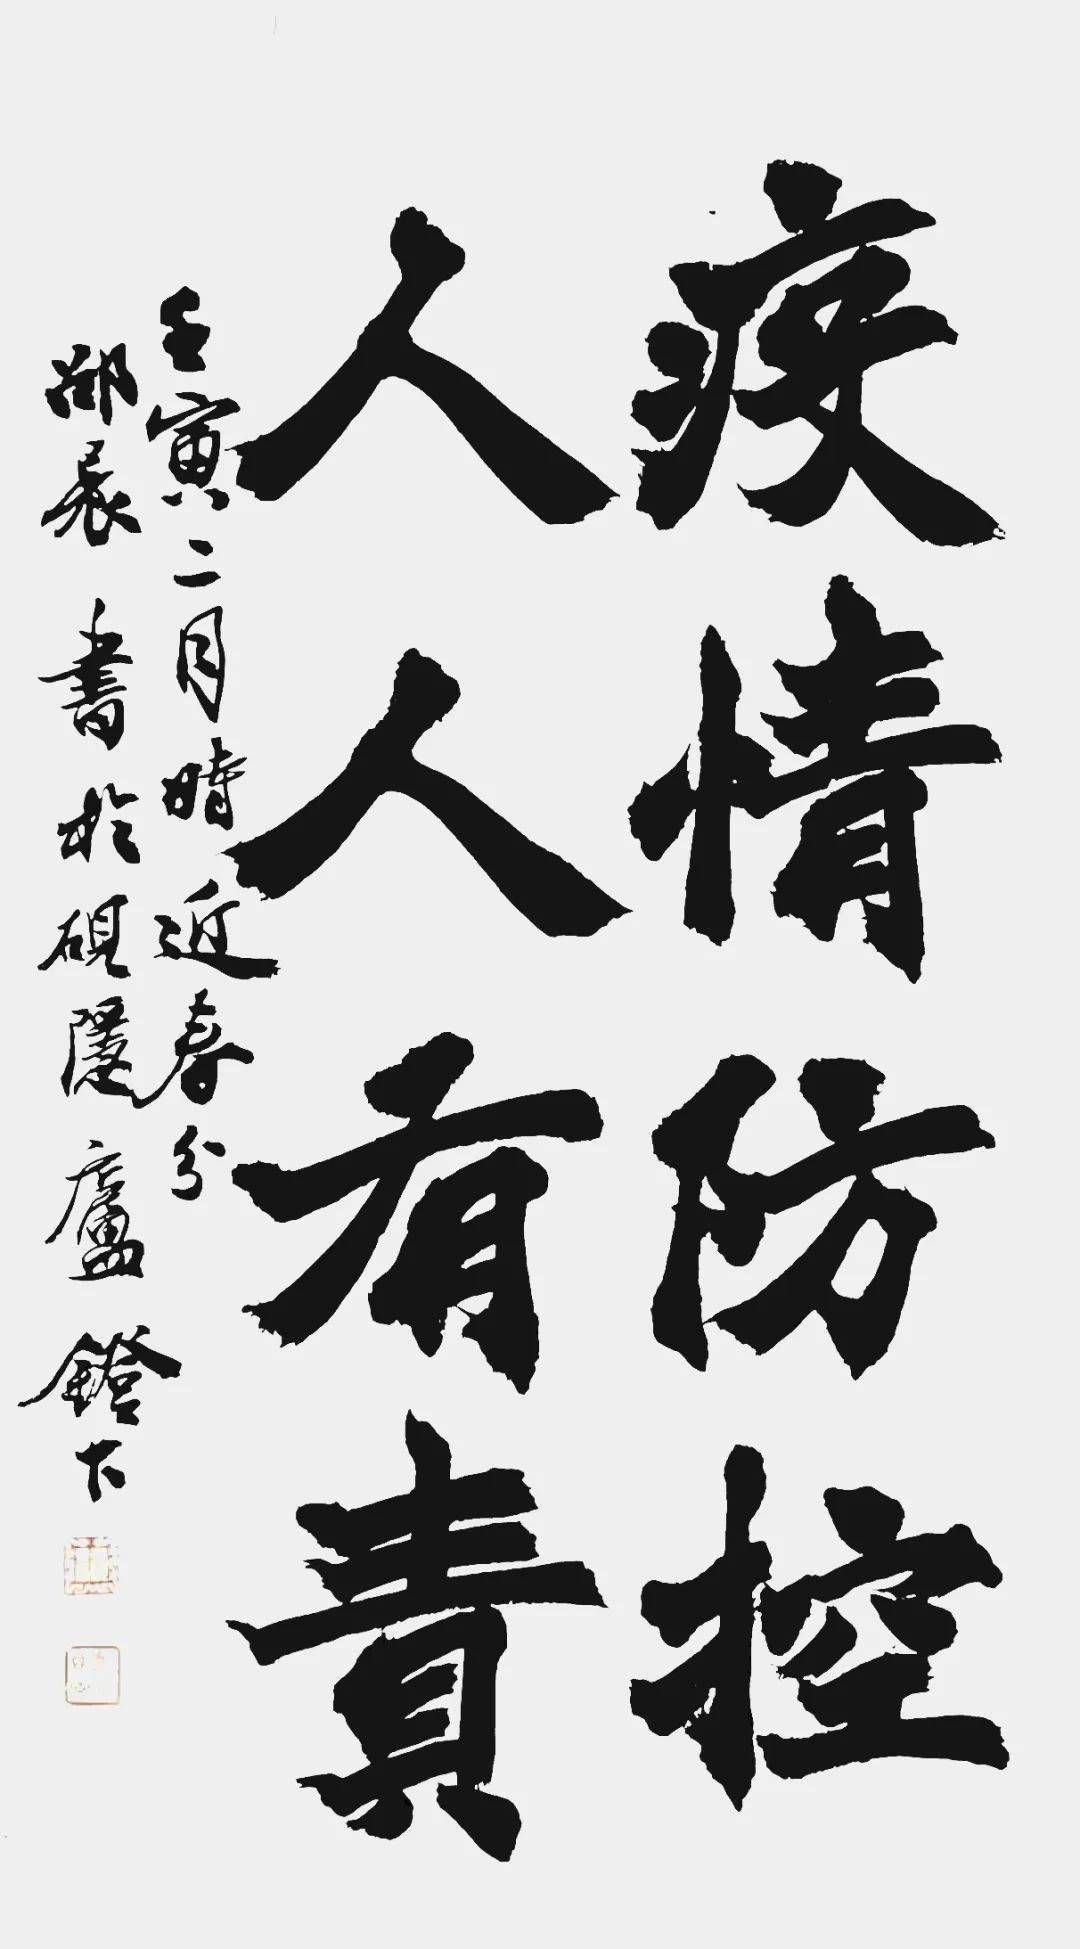 疫情防控
人人有責
壬寅二月時近春分
邵晨書於硯隱廬鐙下